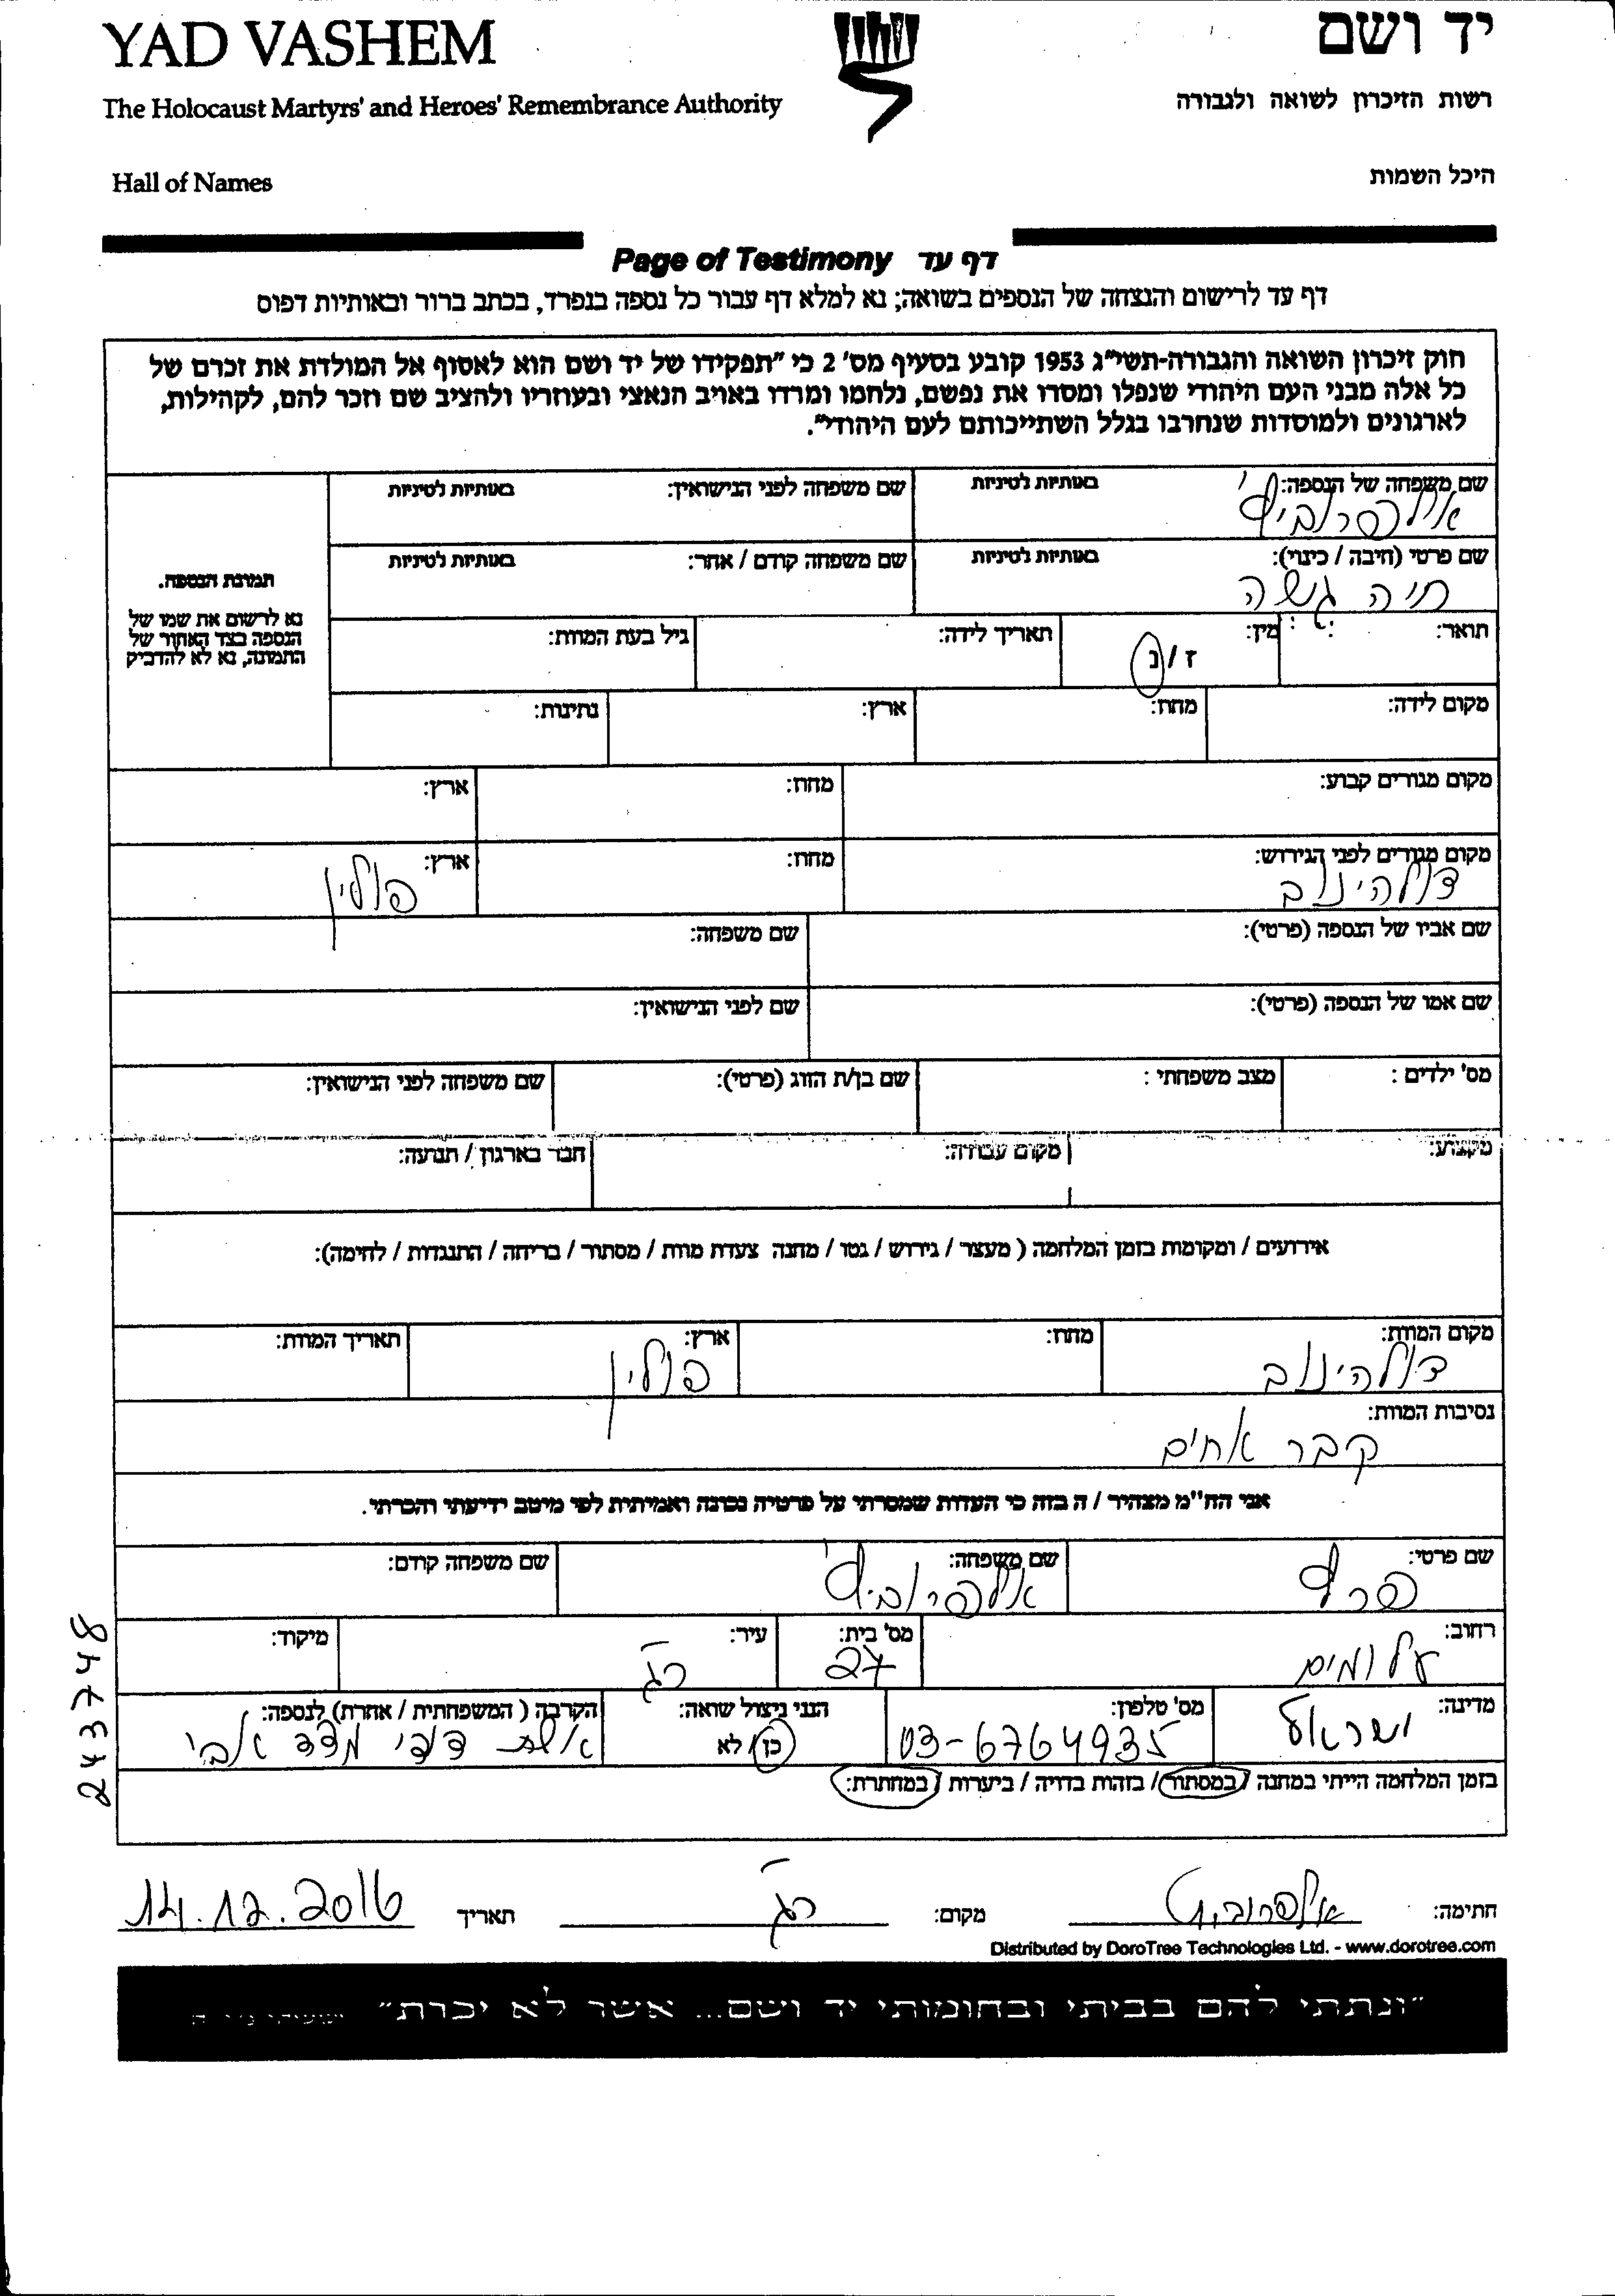 YAD VASHEM
יד ושם
The Holocaust Martyrs' and Heroes' Remembrance Authority
רשות הזיכרון לשואה ולגבורה
Hall of Names
היכל השמות
Page of Testimony דף עד
דף עד לרישום והנצחה של הנספים בשואה; נא למלא דף עבור כל נספה בנפרד, בכתב ברור ובאותיות דפוס
חוק זיכרון השואה והגבורה-תשי"ג 1953 קובע בסעיף מס' 2 כי "תפקידו של יד ושם הוא לאסוף אל המולדת את זכרם של
כל אלה מבני העם היהודי שנפלו ומסרו את נפשם, נלחמו ומרדו באויב הנאצי ובעוזריו ולהציב שם וזכר להם, לקהילות,
לארגונים ולמוסדות שנחרבו בגלל השתייכותם לעם היהודי".
שם משפחה של הנספה: באותיות לטיניות שם משפחה לפני הנישואין: באותיות לטיניות
אלפרוביץ'
שם פרטי (חיבה / כינוי): באותיות לטיניות שם משפחה קודם / אחר: באותיות לטיניות
חיה גישה
תמונת הנספה.
נא לרשום את שמו של
הנספה בצד האחור של
התמונה, נא לא להדביק
תואר: מין: ז / נ תאריך לידה: גיל בעת המוות:
מקום לידה: מחוז: ארץ: נתינות:
מקום מגורים קבוע: מחוז: ארץ:
מקום מגורים לפני הגירוש: מחוז: ארץ:
דולהינוב פולין
שם אביו של הנספה (פרטי): שם משפחה:
שם אמו של הנספה (פרטי): שם לפני הנישואין:
מס' ילדים : מצב משפחתי : שם בן/ת הזוג (פרטי): שם משפחה לפני הנישואין:
מקצוע: מקום עבודה: חבר בארגון / תנועה:
אירועים / ומקומות בזמן המלחמה ( מעצר / גירוש / גטו / מחנה צעדת מוות / מסתור / בריחה / התנגדות / לחימה):
מקום המוות: מחוז: ארץ: תאריך המוות:
דולהינוב פולין
נסיבות המוות:
קבר אחים
אני הח"מ מצהיר / ה בזה כי העדות שמסרתי על פרטיה נכונה ואמיתית לפי מיטב ידיעתי והכרתי.
שם פרטי: שם משפחה: שם משפחה קודם:
אלפרוביץ'
רחוב: מס' בית: עיר: מיקוד:
עלומים 27 רג
מדינה: מס' טלפון: הנני ניצול שואה: הקרבה ( המשפחתית / אחרת) לנספה:
ישראל 03-6764935 כן / לא אשת דודי מצד אבי
בזמן המלחמה הייתי במחנה / במסתור / בזהות בדויה / ביערות / במחתרת:
243748
חתימה: אלפרוביץ מקום: רג תאריך 14.12.2016
Distributed by DoroTree Technologies Ltd. - www.dorotree.com
"ונתתי להם בביתי ובחומותי יד ושם... אשר לא יכרת"